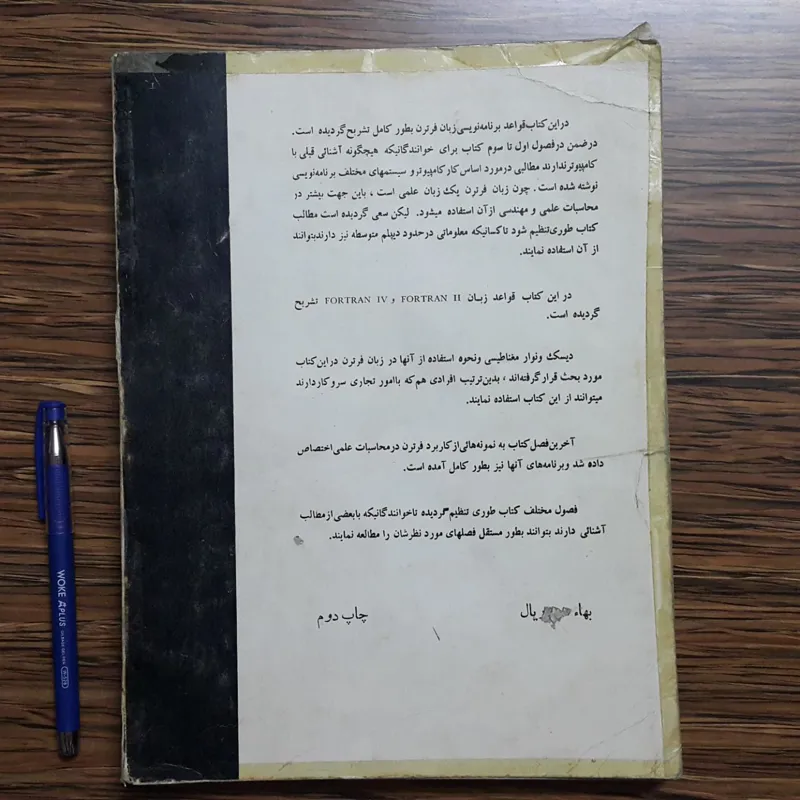 در این کتاب قواعد برنامه‌نویسی زبان فرترن بطور کامل تشریح گردیده است.
در ضمن در فصول اول تا سوم کتاب برای خوانندگانیکه هیچگونه آشنائی قبلی با
کامپیوتر ندارند مطالبی در مورد اساس کار کامپیوتر و سیستمهای مختلف برنامه‌نویسی
نوشته شده است. چون زبان فرترن یک زبان علمی است ، باین جهت بیشتر در
محاسبات علمی و مهندسی از آن استفاده میشود. لیکن سعی گردیده است مطالب
کتاب طوری تنظیم شود تا کسانیکه معلوماتی در حدود دیپلم متوسطه نیز دارند بتوانند
از آن استفاده نمایند.
در این کتاب قواعد زبان FORTRAN II و FORTRAN IV تشریح
گردیده است.
دیسک و نوار مغناطیسی و نحوه استفاده از آنها در زبان فرترن در این کتاب
مورد بحث قرار گرفته‌اند ، بدین‌ترتیب افرادی هم که با امور تجاری سروکار دارند
میتوانند از این کتاب استفاده نمایند.
آخرین فصل کتاب به نمونه‌هائی از کاربرد فرترن در محاسبات علمی اختصاص
داده شد و برنامه‌های آنها نیز بطور کامل آمده است.
فصول مختلف کتاب طوری تنظیم گردیده تا خوانندگانیکه با بعضی از مطالب
آشنائی دارند بتوانند بطور مستقل فصلهای مورد نظرشان را مطالعه نمایند.
بهاء یال
چاپ دوم
WOKE APLUS